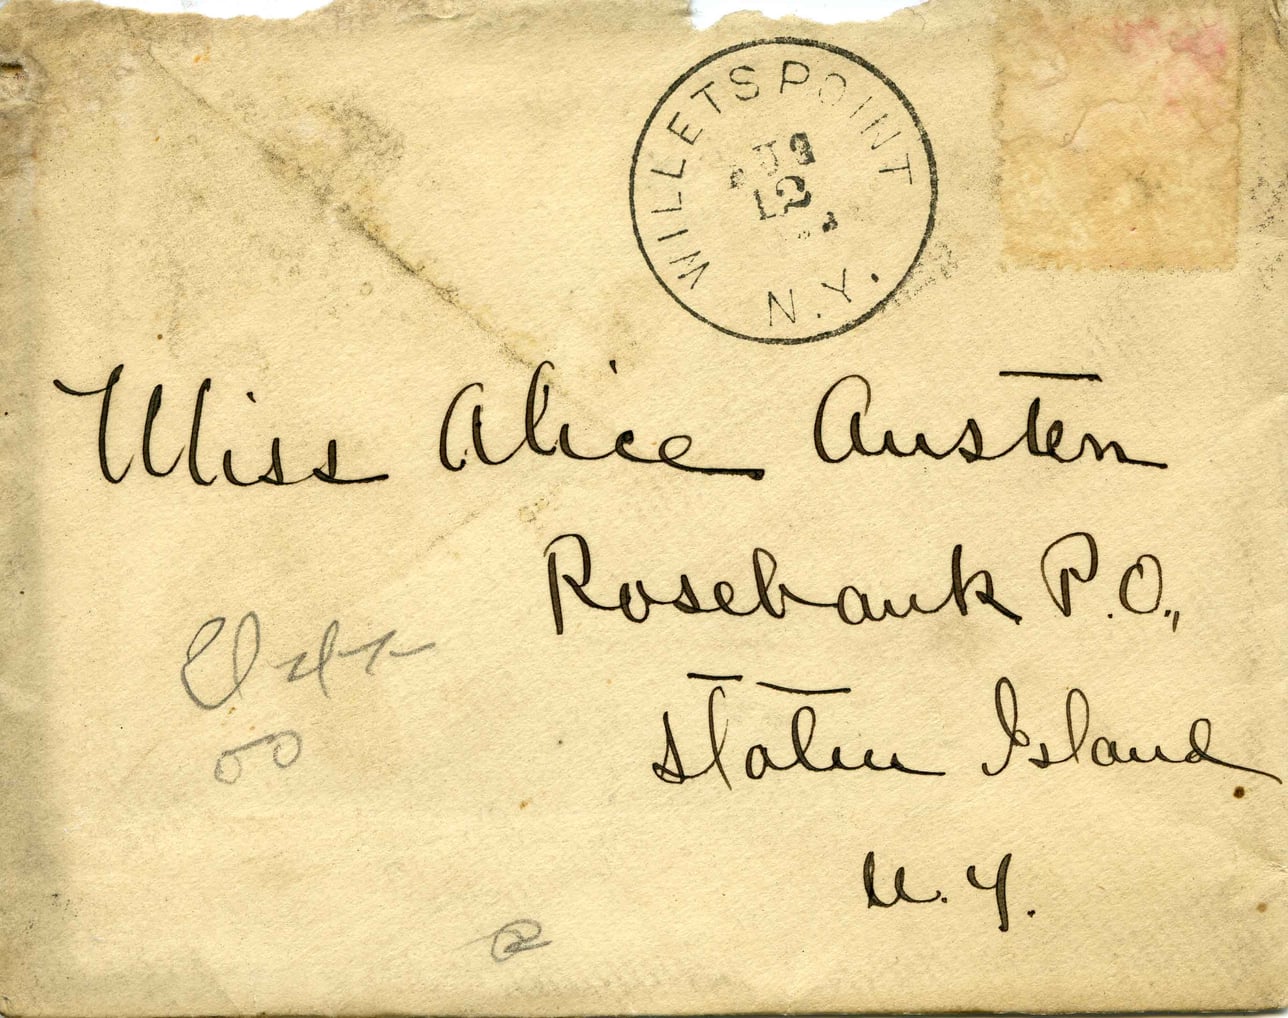 WILLETS POINT
N.Y.
Miss Alice Austen
Rosebank P.O.,
Staten Island
N.Y.